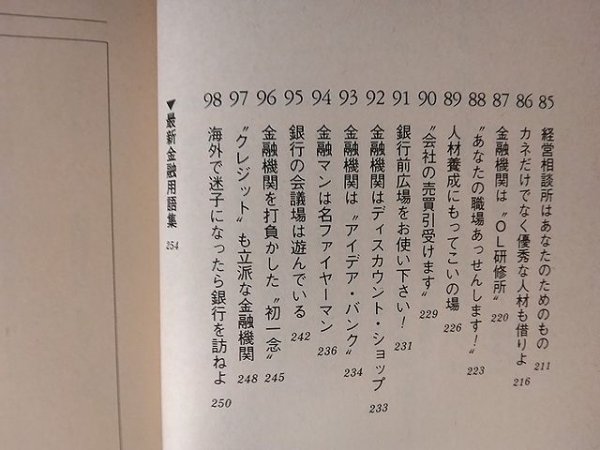 85 経営相談所はあなたのためのもの 211
86 カネだけでなく優秀な人材も借りよ 216
87 金融機関は〝OL研修所〟 220
88 〝あなたの職場あっせんします！〟 223
89 人材養成にもってこいの場 226
90 〝会社の売買引受けます〟 229
91 銀行前広場をお使い下さい！ 231
92 金融機関はディスカウント・ショップ 233
93 金融機関は〝アイデア・バンク〟 234
94 金融マンは名ファイヤーマン 236
95 銀行の会議場は遊んでいる 242
96 金融機関を打負かした〝初一念〟 245
97 〝クレジット〟も立派な金融機関 248
98 海外で迷子になったら銀行を訪ねよ 250
▼最新金融用語集 254